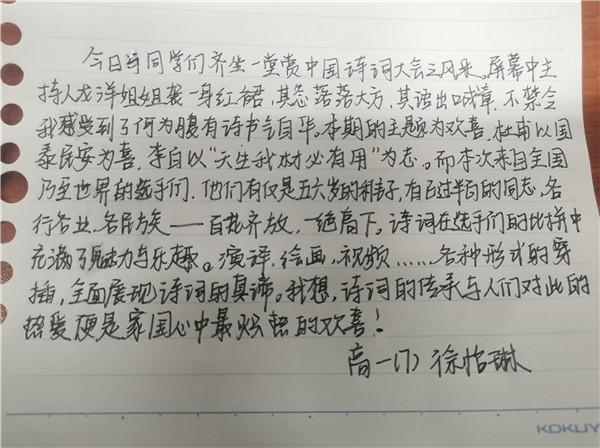 今日与同学们齐坐一堂赏中国诗词大会之风采。屏幕中主
持人龙洋姐姐袭一身红裙，其态落落大方，其语出口成章，不禁令
我感受到了何为腹有诗书气自华。本期的主题为欢喜，杜甫以国
泰民安为喜，李白以“天生我材必有用”为志。而本次来自全国
乃至世界的选手们，他们有仅是五六岁的稚子，有已过半百的同志，各
行各业，各民族——百花齐放，一绝高下。诗词在选手们的比拼中
充满了魅力与乐趣。演评，绘画，视频……各种形式的穿
插，全面展现诗词的真谛。我想，诗词的传承与人们对此的
热爱便是家国心中最炽热的欢喜！
高一(7) 徐怡琳
KOKUY